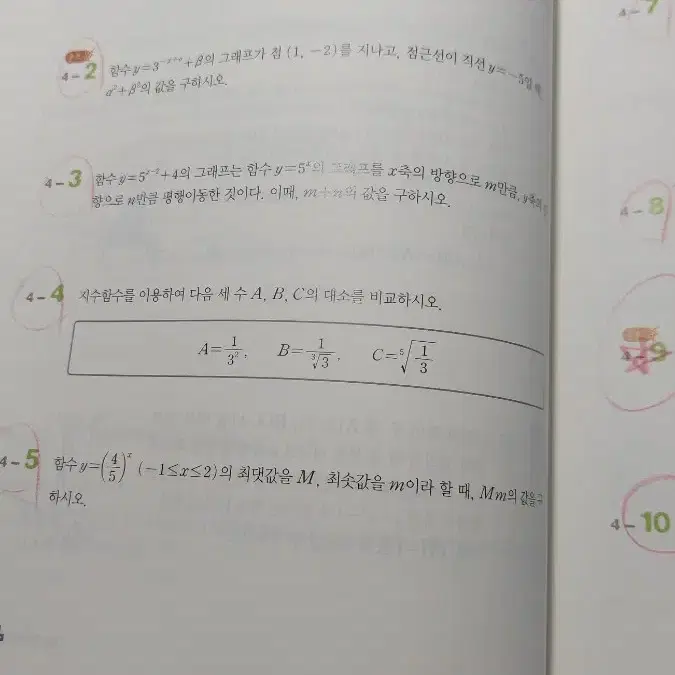 4-2 함수 y=3^{-x+α}+β의 그래프가 점 (1, -2)를 지나고, 점근선이 직선 y=-5일 때
α²+β²의 값을 구하시오.
4-3 함수 y=5^{x-2}+4의 그래프는 함수 y=5^x의 그래프를 x축의 방향으로 m만큼, y축의
향으로 n만큼 평행이동한 것이다. 이때, m+n의 값을 구하시오.
4-4 지수함수를 이용하여 다음 세 수 A, B, C의 대소를 비교하시오.
A=1/3², B=1/∛3, C=⁵√(1/3)
4-5 함수 y=(4/5)^x (-1≤x≤2)의 최댓값을 M, 최솟값을 m이라 할 때, Mm의 값을
하시오.
4-7
4-8
4-9
4-10